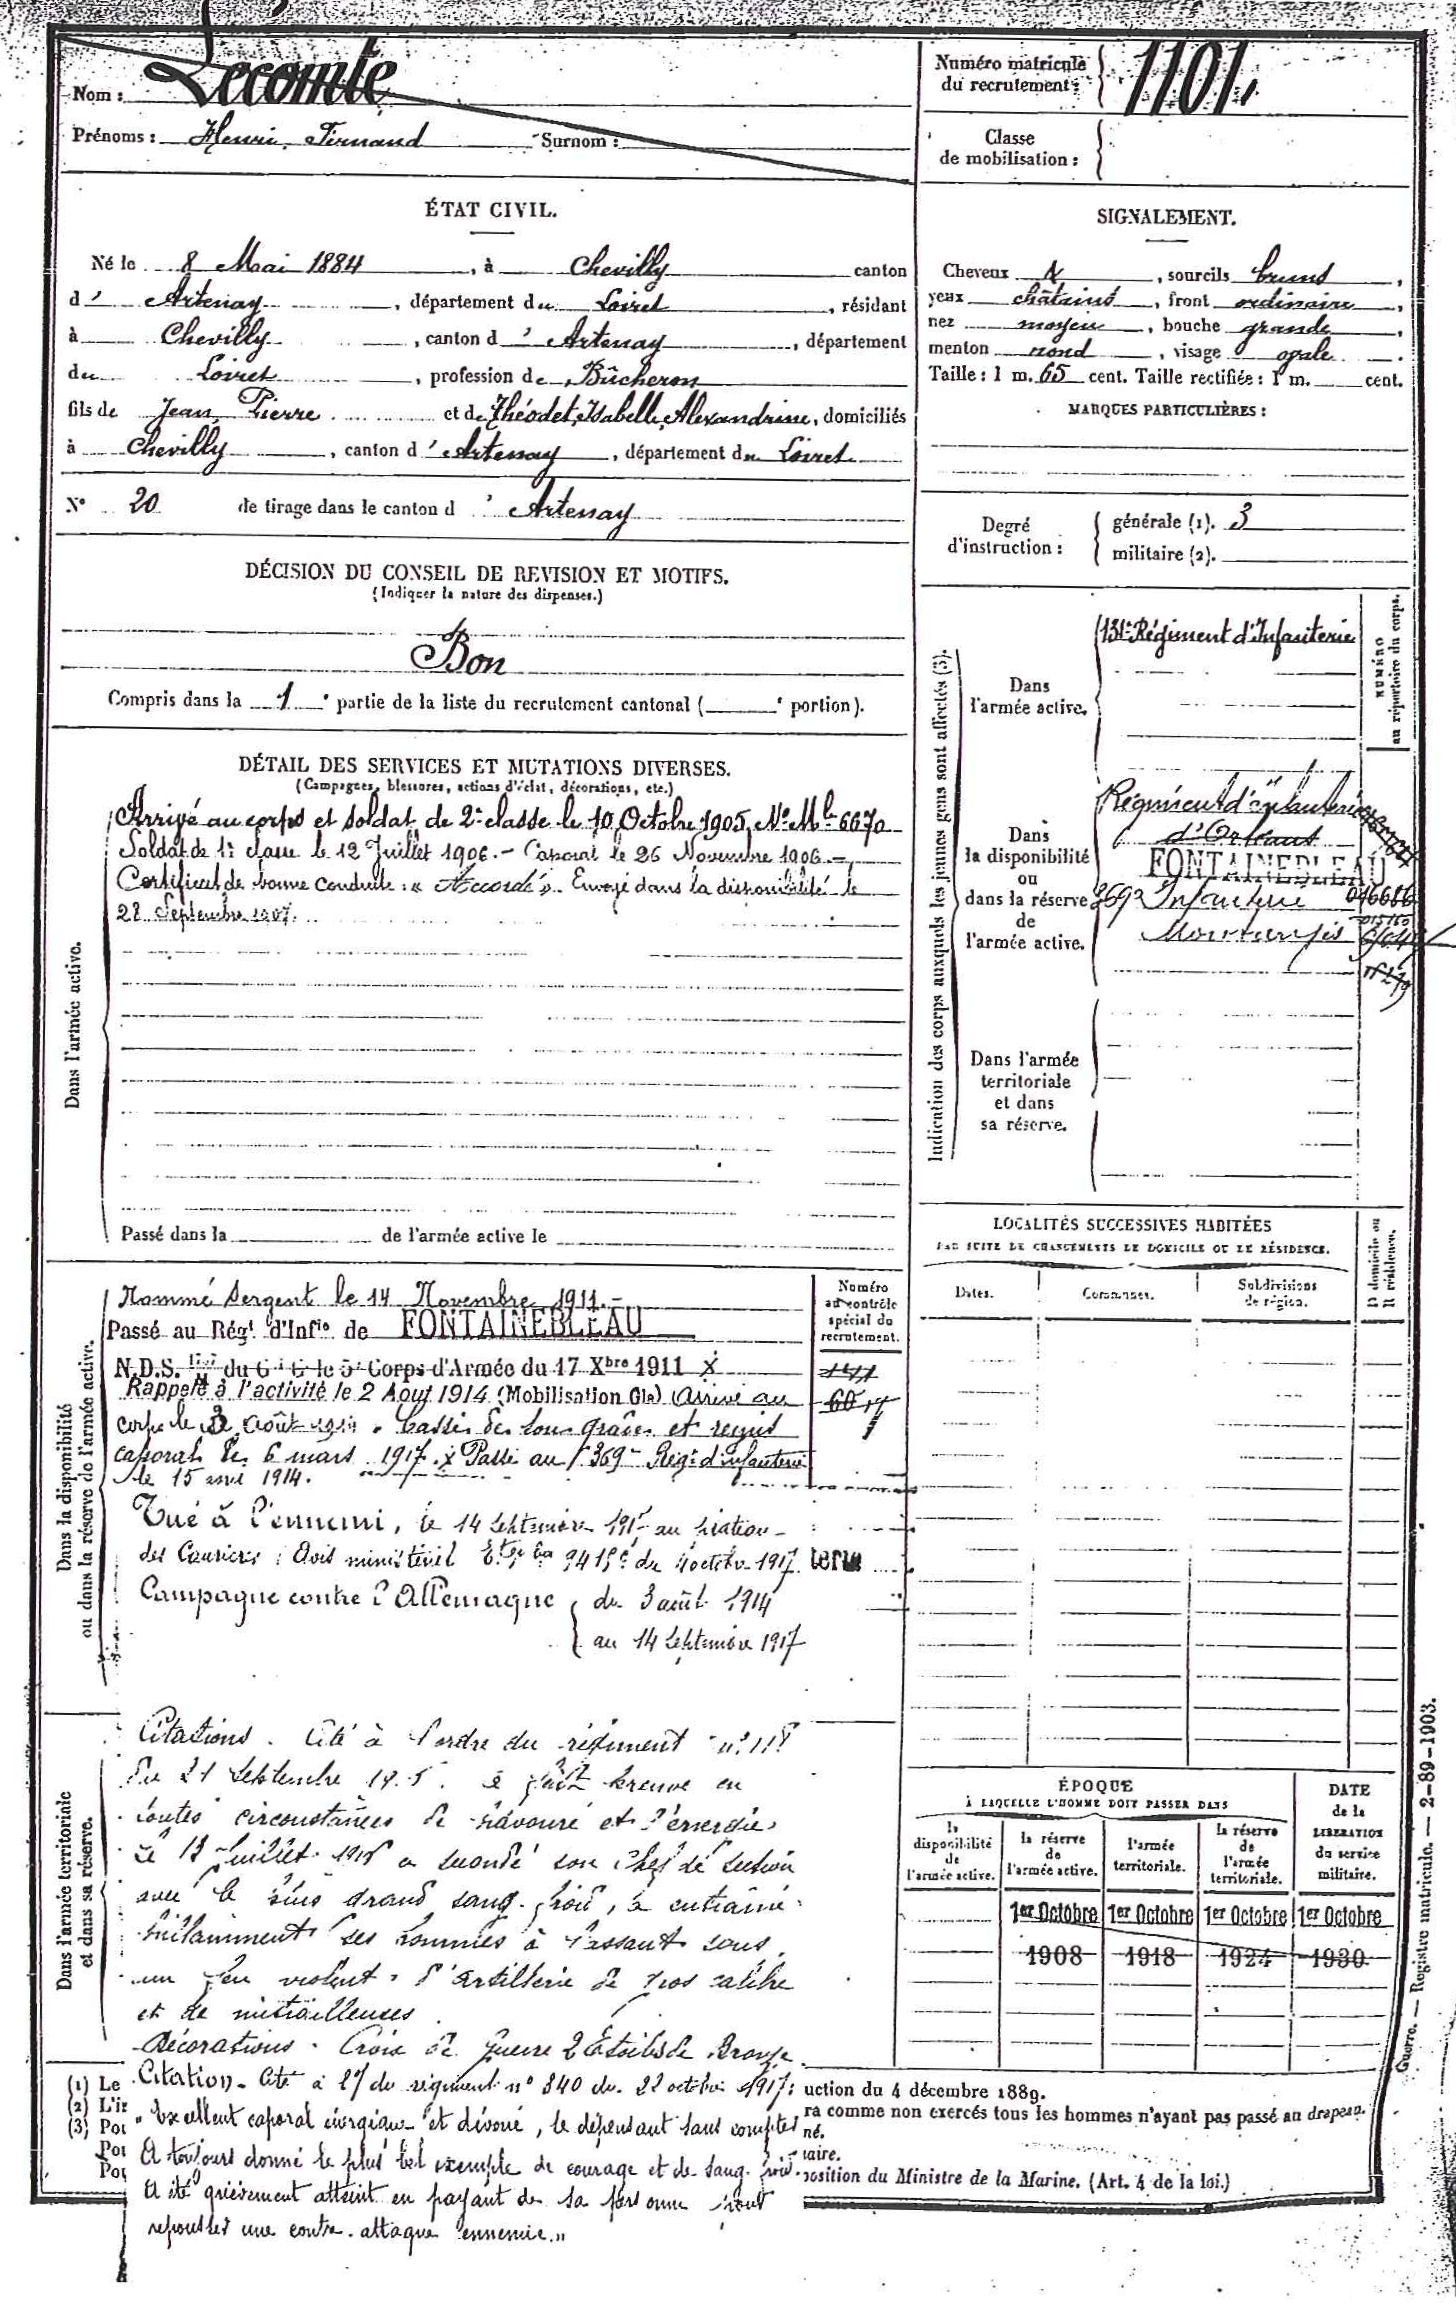 Nom : Lecomte
Prénoms : Henri, Fernand Surnom :
Numéro matricule
du recrutement : 1101.
Classe
de mobilisation :
ÉTAT CIVIL.
Né le 8 Mai 1884, à Chevilly canton
d' Artenay, département du Loiret, résidant
à Chevilly, canton d' Artenay, département
du Loiret, profession de Bûcheron
fils de Jean Pierre et de Théodet, Isabelle, Alexandrine, domiciliés
à Chevilly, canton d' Artenay, département du Loiret
N° 20 de tirage dans le canton d' Artenay
SIGNALEMENT.
Cheveux N, sourcils bruns,
yeux châtains, front ordinaire,
nez moyen, bouche grande,
menton rond, visage ovale.
Taille : 1 m. 65 cent. Taille rectifiée : 1 m. cent.
MARQUES PARTICULIÈRES :
Degré
d'instruction :
générale (1). 3
militaire (2).
DÉCISION DU CONSEIL DE REVISION ET MOTIFS.
(Indiquer la nature des dispenses.)
Bon
Compris dans la 1e partie de la liste du recrutement cantonal ( e portion).
DÉTAIL DES SERVICES ET MUTATIONS DIVERSES.
(Campagnes, blessures, actions d'éclat, décorations, etc.)
Dans l'armée active.
Arrivé au corps et soldat de 2e classe le 10 Octobre 1905, N° Mle 6670
Soldat de 1e classe le 12 Juillet 1906. – Caporal le 26 Novembre 1906. –
Certificat de bonne conduite : « Accordé ». Envoyé dans la disponibilité le
28 Septembre 1907.
Passé dans la de l'armée active le
Indication des corps auxquels les jeunes gens sont affectés (3).
NUMÉRO
au répertoire du corps.
Dans
l'armée active.
131e Régiment d'Infanterie
Dans
la disponibilité
ou
dans la réserve
de
l'armée active.
Régiment d'Infanterie
d'Orléans
FONTAINEBLEAU
369e Infanterie
Montargis
Dans l'armée
territoriale
et dans
sa réserve.
LOCALITÉS SUCCESSIVES HABITÉES
PAR SUITE DE CHANGEMENTS DE DOMICILE OU DE RÉSIDENCE.
Dates.
Communes.
Subdivisions
de région.
D domicile ou
R résidence.
Dans la disponibilité
ou dans la réserve de l'armée active.
Numéro
au contrôle
spécial du
recrutement.
Nommé Sergent le 14 Novembre 1911. –
Passé au Régt d'Infie de FONTAINEBLEAU
N.D.S. du G le 5e Corps d'Armée du 17 Xbre 1911 X
Rappelé à l'activité le 2 Aout 1914 (Mobilisation Gle) Arrivé au
corps le 3 Août 1914. Cassé de son grade et remis
caporal le 6 mars 1917. X Passé au 369me Régt d'infanterie
le 15 avril 1914.
Tué à l'ennemi, le 14 Septembre 1917 au
des Courriers. Avis ministériel du 4 octobre 1917.
Campagne contre l'Allemagne du 3 août 1914
au 14 Septembre 1917
Dans l'armée territoriale
et dans sa réserve.
Citations. Cité à l'ordre du régiment n° 118
du 21 Septembre 191 . a fait preuve en
toutes circonstances de bravoure et d'énergie.
Le 13 Juillet 1915 a secondé son chef de section
avec le plus grand sang-froid, a entraîné
brillamment ses hommes à l'assaut sous
un feu violent d'artillerie de gros calibre
et de mitrailleuses.
Décorations. Croix de guerre 2 Etoiles de Bronze
Citation. Cité à l'O du régiment n° 340 du 22 octobre 1917 :
« Excellent caporal énergique et dévoué, se dépensant sans compter
A toujours donné le plus bel exemple de courage et de sang-froid.
A été grièvement atteint en payant de sa personne pour
repousser une contre-attaque ennemie. »
ÉPOQUE
À LAQUELLE L'HOMME DOIT PASSER DANS
la
disponibilité
de
l'armée active.
la réserve
de
l'armée active.
l'armée
territoriale.
la réserve
de
l'armée
territoriale.
DATE
de la
LIBÉRATION
du service
militaire.
1er Octobre 1er Octobre 1er Octobre 1er Octobre
1908 1918 1924 1930
(1) Le
(2) L'in
(3) Pou
Pou
Pou
uction du 4 décembre 1889.
ra comme non exercés tous les hommes n'ayant pas passé au drapeau.
né.
naire.
position du Ministre de la Marine. (Art. 4 de la loi.)
Guerre. — Registre matricule. — 2-89-1903.